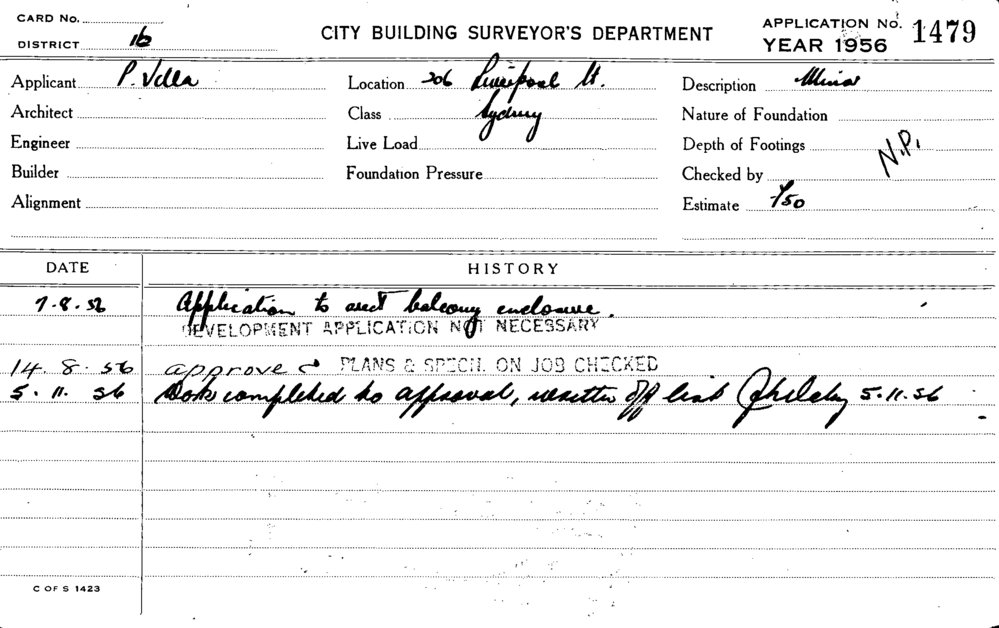 CARD No.
DISTRICT 16
CITY BUILDING SURVEYOR'S DEPARTMENT
APPLICATION No. 1479
YEAR 1956
Applicant P. Villa
Location 206 Liverpool St.
Description Minor
Architect
Class Sydney
Nature of Foundation
Engineer
Live Load
Depth of Footings
N.P.
Builder
Foundation Pressure
Checked by
Alignment
Estimate £50
DATE HISTORY
7.8.56 Application to erect balcony enclosure.
DEVELOPMENT APPLICATION NOT NECESSARY
14.8.56 approved PLANS & SPECN. ON JOB CHECKED
5.11.56 Work completed to approval, written off list 5.11.56
C OF S 1423